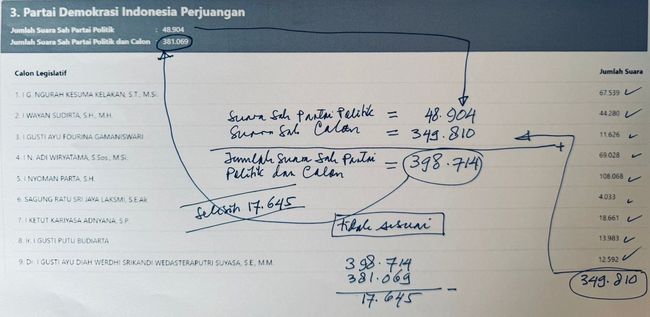 3. Partai Demokrasi Indonesia Perjuangan
Jumlah Suara Sah Partai Politik : 48.904
Jumlah Suara Sah Partai Politik dan Calon 381.069
Calon Legislatif Jumlah Suara
1. I G. NGURAH KESUMA KELAKAN, S.T., M.Si. 67.539 ✓
2. I WAYAN SUDIRTA, S.H., M.H. 44.280 ✓
Suara Sah Partai Politik = 48.904
3. I GUSTI AYU FOURINA GAMANISWARI 11.626 ✓
Suara Sah Calon = 349.810
+
4. I N. ADI WIRYATAMA, S.Sos., M.Si. 69.028 ✓
Jumlah Suara Sah Partai
Politik dan Calon = 398.714
5. I NYOMAN PARTA, S.H. 108.068 ✓
6. SAGUNG RATU SRI JAYA LAKSMI, S.E.Ak 4.033 ✓
Selisih 17.645
7. I KETUT KARIYASA ADNYANA, S.P. 18.661 ✓
Tidak sesuai
8. Ir. I GUSTI PUTU BUDIARTA 13.983 ✓
9. Dr. I GUSTI AYU DIAH WERDHI SRIKANDI WEDASTERAPUTRI SUYASA, S.E., M.M. 12.592 ✓
398.714
381.069
-
17.645
349.810